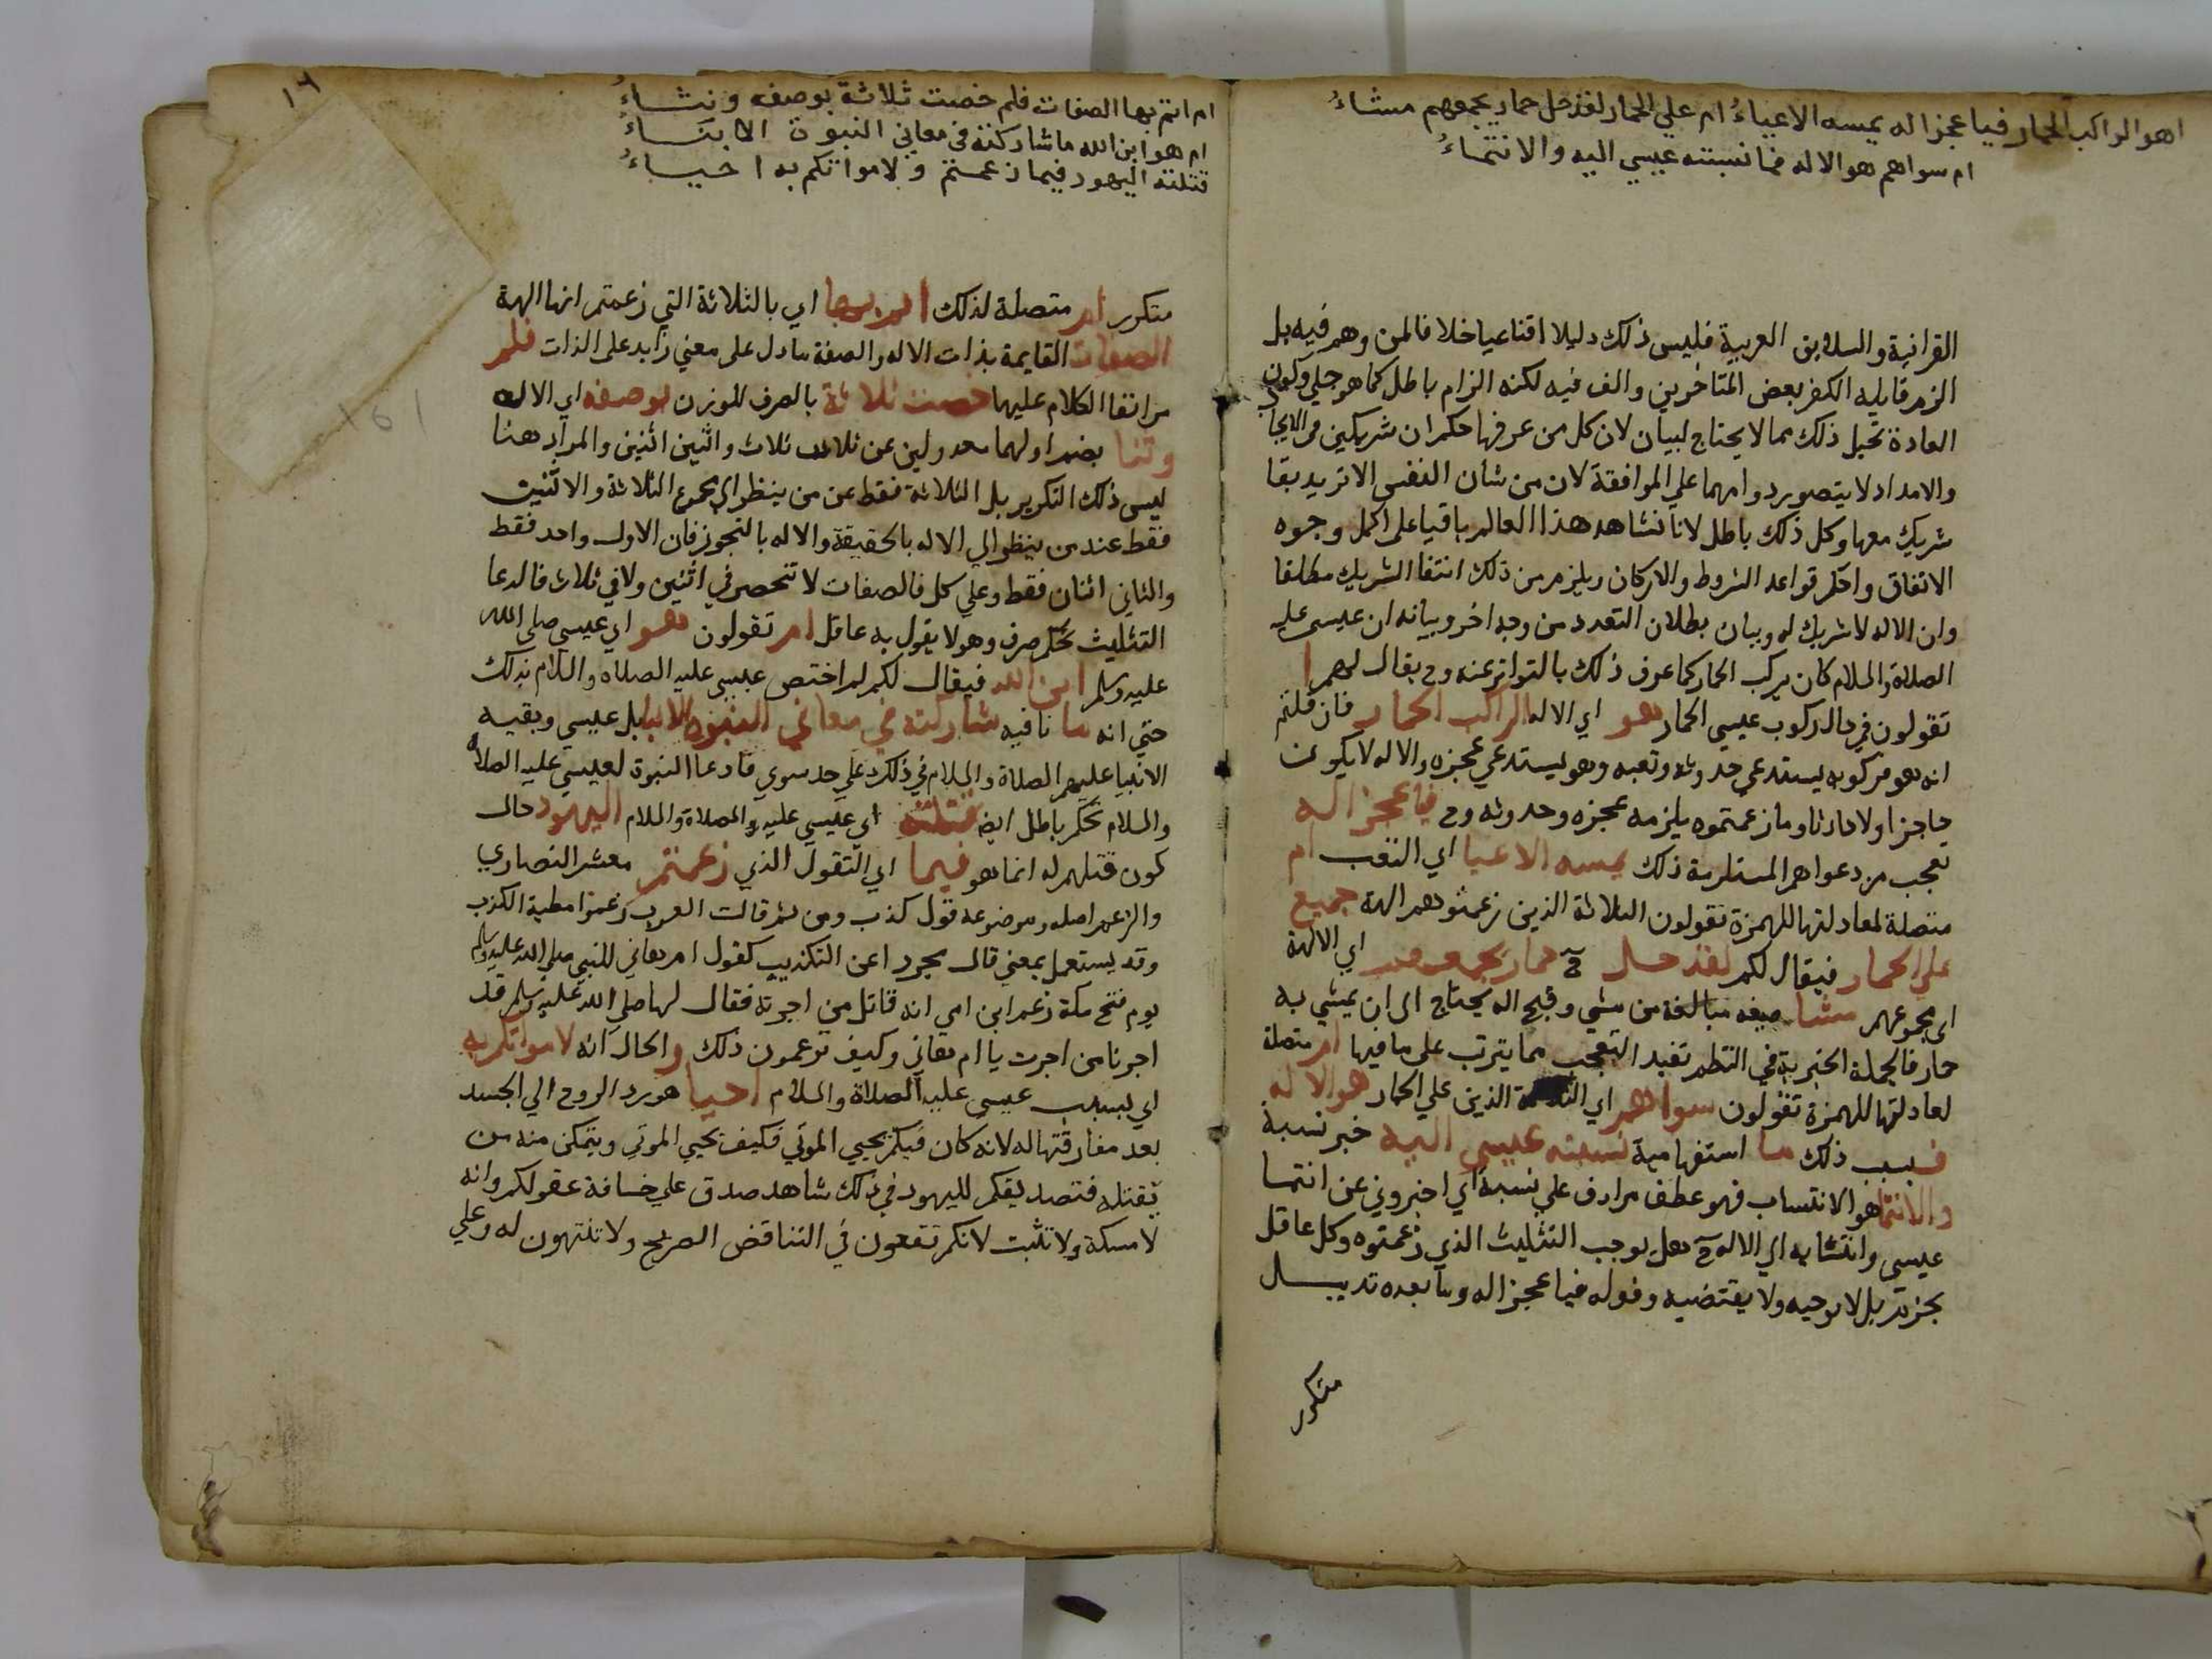 اهو الراكب الحمار فيا عجز اله يمسه الاعياءُ ام علي الحمار لقد حل حمار يجمعهم مشاءُ
ام سواهم هو الاله فما نسبته عيسي اليه والانتماءُ
القرانية والسلايق العربية فليس ذلك دليلا اقناعيا خلافا لمن وهم فيه بل
الزم قايليه الكفر بعض المتاخرين والف فيه لكنه الزام باطل كما هو جلي وكون
العادة تحيل ذلك مما لا يحتاج لبيان لان كل من عرفها حكم ان شريكين في الايجاد
والامداد لا يتصور دوامهما علي الموافقة لان من شأن النفس الا تريد بقا
شريك معها وكل ذلك باطل لانا نشاهد هذا العالم باقيا علي اكمل وجوه
الاتفاق واحكم قواعد الشروط والاركان ويلزم من ذلك انتفا الشريك مطلقا
وان الاله لا شريك له وبيان بطلان التعدد من وجه اخر وبيانه ان عيسى عليه
الصلاة والسلام كان يركب الحمار كما عرف ذلك بالتواتر عنه وح يقال لهم ا
تقولون في حال ركوب عيسي الحمار هو اي الاله الراكب الحمار فان قلتم
انه هو فركوبه يستدعي حدوثه وتعبه وهو يستدعي عجزه والاله لا يكون
عاجزا ولا حادثا وما زعمتموه يلزمه عجزه وحدوثه وح فيا عجز اله
تعجب من دعواهم المستلزمة ذلك يمسه الاعيا اي التعب ام
متصلة لمعادلتها للهمزة تقولون الثلاثة الذين زعمتوهم الهة جميع
علي الحمار فيقال لكم لقد حل ح حمار يجمعهم اي الالهة
اي مجموعهم مشا صيغه مبالغة من مشي وقبح اله يحتاج الي ان يمشي به
حمار فالجملة الخبرية في النظم تفيد التعجب مما يترتب علي ما فيها ام متصلة
لمعادلتها للهمزة تقولون سواهم اي الثلاثة الذين علي الحمار هو الاله
فبسبب ذلك ما استفهامية نسبته عيسي اليه خبر نسبة
والانتما هو الانتساب فهو عطف مرادف علي نسبة اي اخبروني عن انتما
عيسي وانتسابه الي الاله ح هل يوجب التثليث الذي زعمتوه وكل عاقل
يجزم بل لا يوجبه ولا يقتضيه وقوله فيا عجز اله وما بعده تذييل
متكرر
١٦
ام انتم بها الصفات فلم خصت ثلاثة بوصفه وثناءُ
ام هو ابن الله ما شاركته في معاني النبوة الانبياءُ
قتلته اليهود فيما زعمتم ولامواتكم به احياءُ
متكرر ام متصلة لذلك اردتم بها اي بالثلاثة التي زعمتم انها الهة
الصفات القايمة بذات الاله والصفة ما دل على معني زايد على الذات فلم
مر انفا الكلام عليها خصت ثلاثة بالصرف للوزن بوصفه اي الاله
وثنا بضم اولهما معدولين عن ثلاث ثلاث واثنين اثنين والمراد هنا
ليس ذلك التكرير بل الثلاثة فقط عن من ينظر الي مجموع الثلاثة والاثنين
فقط عند من ينظر الي الاله بالحقيقة والاله بالتجوز فان الاول واحد فقط
والثاني اثنان فقط وعلي كل فالصفات لا تنحصر في اثنين ولا في ثلاث فالدعا
التثليث تحكم صرف وهو لا يقول به عاقل ام تقولون هو اي عيسي صلي الله
عليه وسلم ابن الله فيقال لكم لم اختص عيسي عليه الصلاه والسلام بذلك
حتي انه ما نافيه شاركته في معاني النبوه الانبيا بل عيسي وبقيه
الانبيا عليهم الصلاة والسلام في ذلك علي حد سوي فادعا النبوة لعيسي عليه الصلاه
والسلام تحكم باطل ايضا قتلته اي عيسي عليه والصلاة والسلام اليهود حال
كون قتلهم له انما هو فيما اي التقول الذي زعمتم معشر النصاري
والزعم اصله وموضوعه قول كذب ومن ثم قالت العرب زعموا مطية الكذب
وقد يستعمل بمعني قال مجردا عن التكذيب كقول ام هاني للنبي صلي الله عليه وسلم
يوم فتح مكة زعم ابن امي انه قاتل من اجرته فقال لها صلي الله عليه وسلم قد
اجرنا من اجرت يا ام هاني وكيف تزعمون ذلك والحال انه لامواتكم به
اي بسبب عيسي عليه الصلاة والسلام احيا هو رد الروح الي الجسد
بعد مفارقتها له لانه كان فيكم يحيي الموتي فكيف يحيي الموتي ويتمكن منه من
يقتله فتصديقكم لليهود في ذلك شاهد صدق علي خسافة عقولكم وانه
لا مسكة ولا تثبت لانكم تقعون في التناقض الصريح ولا تنتهون له وعلي
161